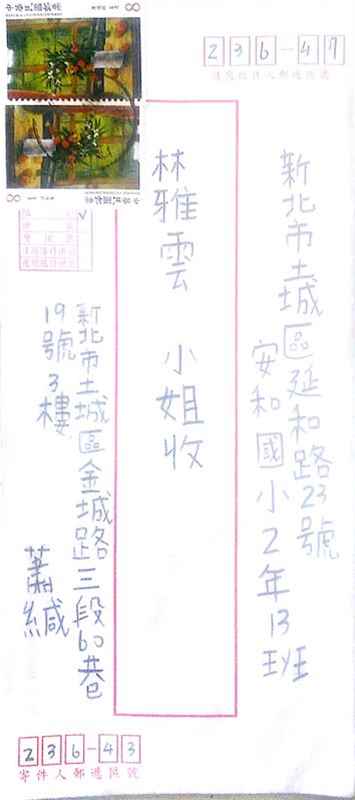 8
8
236-47
新北市土城區延和路23號
安和國小2年13班
林雅雲 小姐收
新北市土城區金城路三段60巷
19號3樓
蕭緘
236-43
寄件人郵遞區號